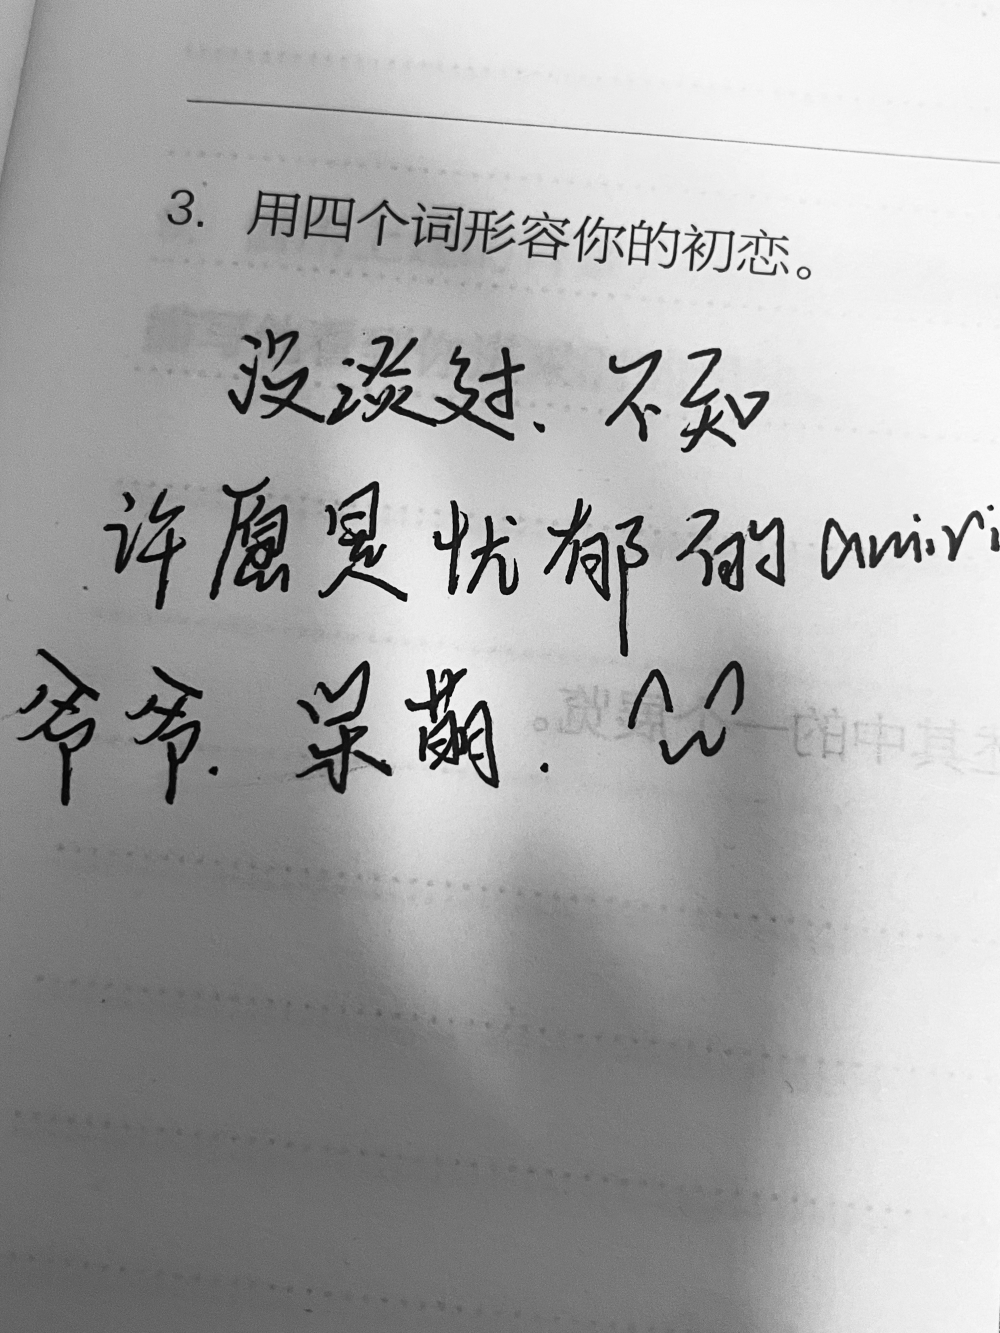 3. 用四个词形容你的初恋。
没谈过、不知
许愿是忧郁的amiri
爷爷.呆萌.
述其中的一个展览。